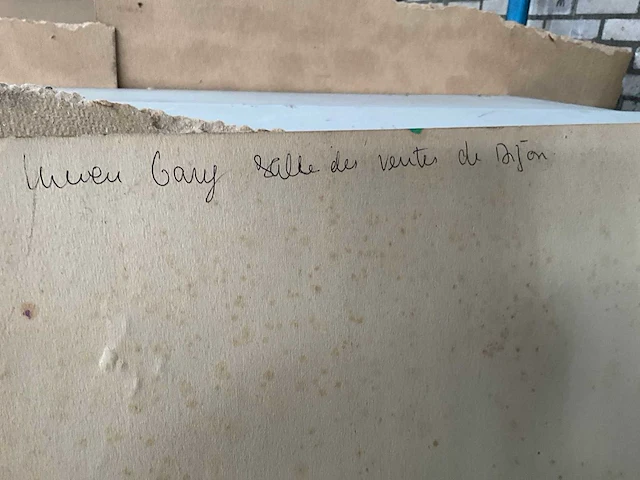 Gary Salle des ventes de Dijon